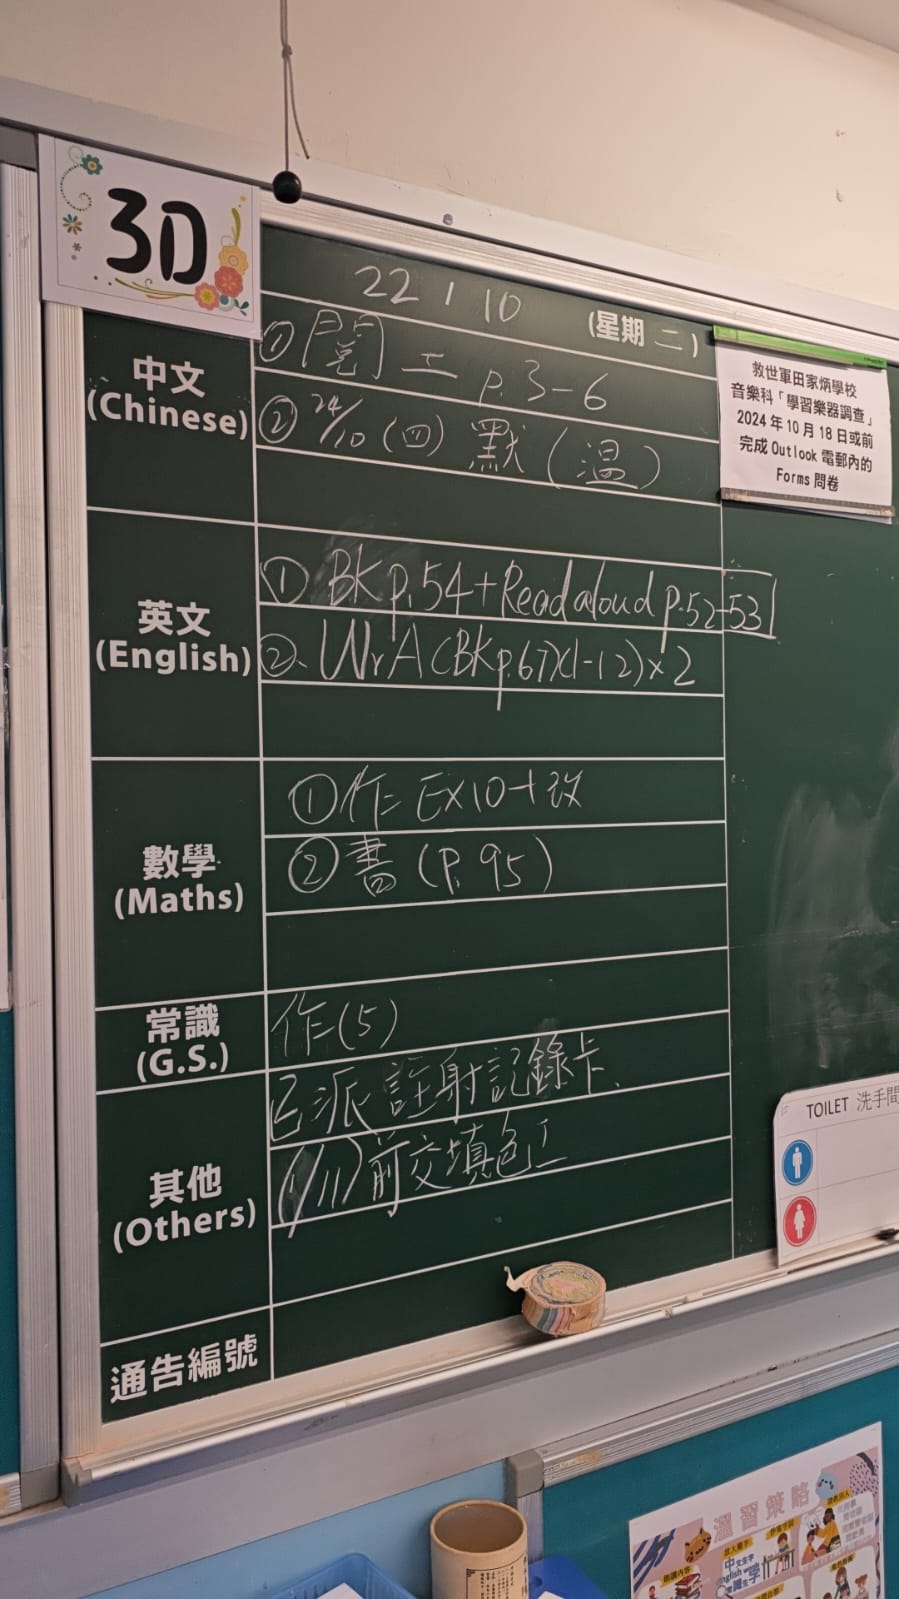 3D
22 / 10
(星期 二)
中文
(Chinese)
① 閱工 p.3-6
② 24/10 (四) 默 (溫)
英文
(English)
① BK p.54 + Read aloud p.52-53
②. Wr A (BK p.67)(1-12) x 2
數學
(Maths)
① 作 Ex10 + 改
② 書 (P.95)
常識
(G.S.)
作 (5)
其他
(Others)
已派註射記錄卡
(1/11) 前交填色工
通告編號
救世軍田家炳學校
音樂科「學習樂器調查」
2024 年 10 月 18 日或前
完成 Outlook 電郵內的
Forms 問卷
TOILET 洗手間
溫習策略